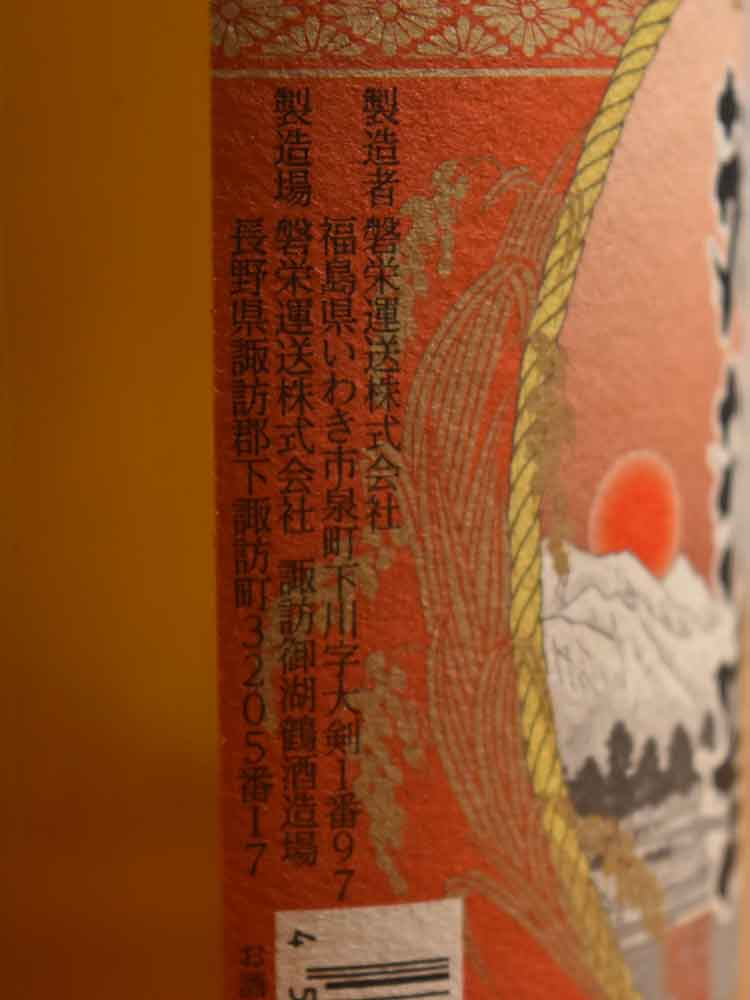 製造者 磐栄運送株式会社
福島県いわき市泉町下川字大剣1番97
製造場 磐栄運送株式会社 諏訪御湖鶴酒造場
長野県諏訪郡下諏訪町3205番17
お酒
4 5